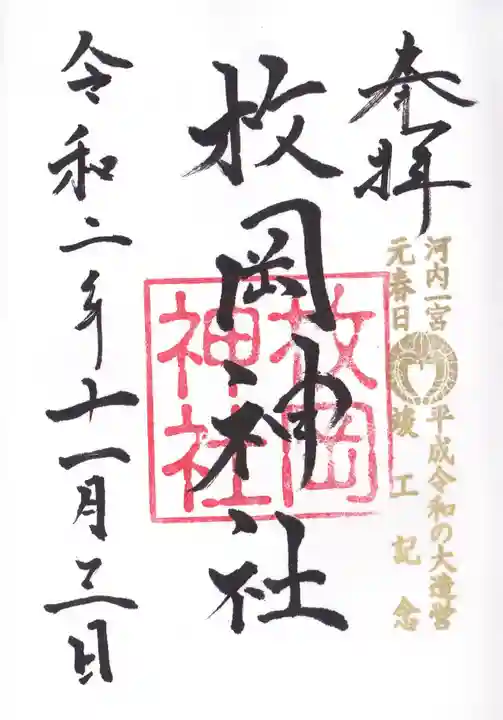 奉拝
河内一宮
平成令和の大造営
元春日
竣工記念
枚岡神社
枚岡
神社
令和二年十一月三日